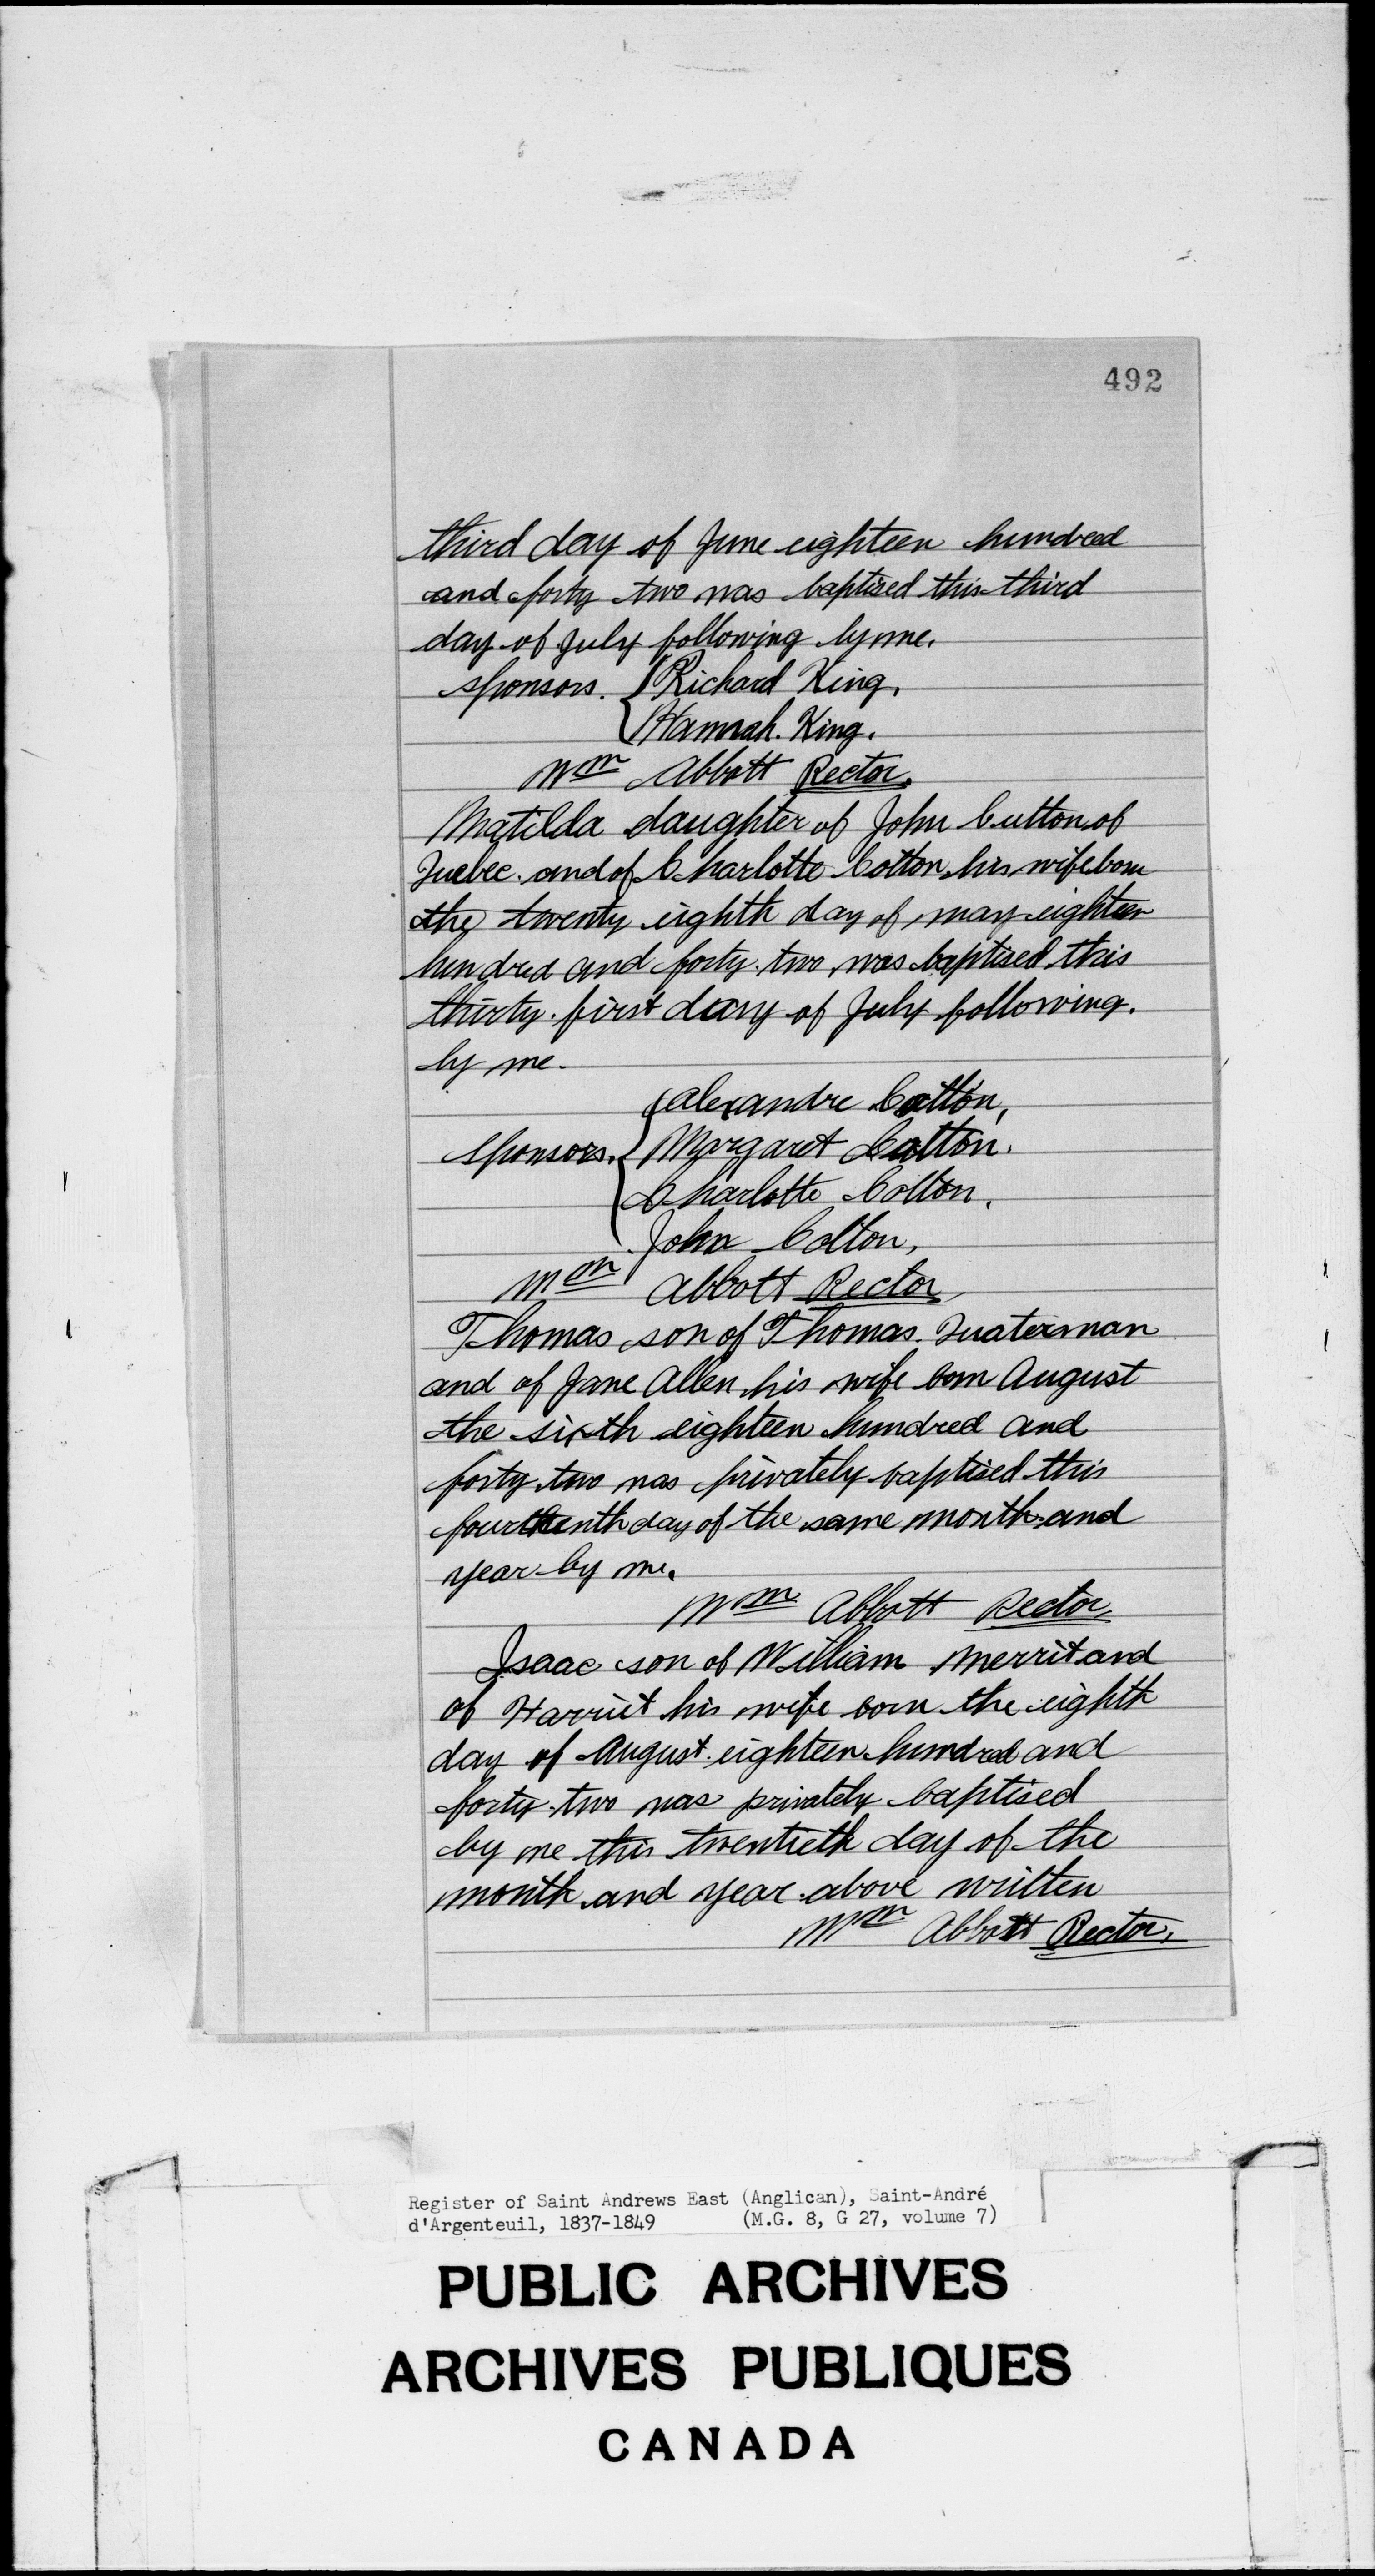 492
third day of June eighteen hundred
and forty two was baptised this third
day of July following by me.
sponsors. { Richard King,
Hannah. King.
Wm Abbott Rector.
Matilda daughter of John Cutton of
Quebec. and of Charlotte Cotton his wife born
the twenty eighth day of may eighteen
hundred and forty. two was baptised this
thirty. first day of July following.
by me.
{ alexandre Cutton,
sponsors. Margaret Cutton.
Charlotte Cotton,
John Cotton,
Wm Abbott Rector
Thomas son of Thomas. Quaterman
and of Jane Allen his wife born August
the sixth eighteen hundred and
forty two was privately baptised this
fourthenth day of the same month and
year by me.
Wm Abbott Rector,
Isaac son of William Merrit and
of Harriet his wife born the eighth
day of August eighteen hundred and
forty. two was privately baptised
by me this twentieth day of the
month and year above written
Wm Abbott Rector,
Register of Saint Andrews East (Anglican), Saint-André
d'Argenteuil, 1837-1849 (M.G. 8, G 27, volume 7)
PUBLIC ARCHIVES
ARCHIVES PUBLIQUES
CANADA